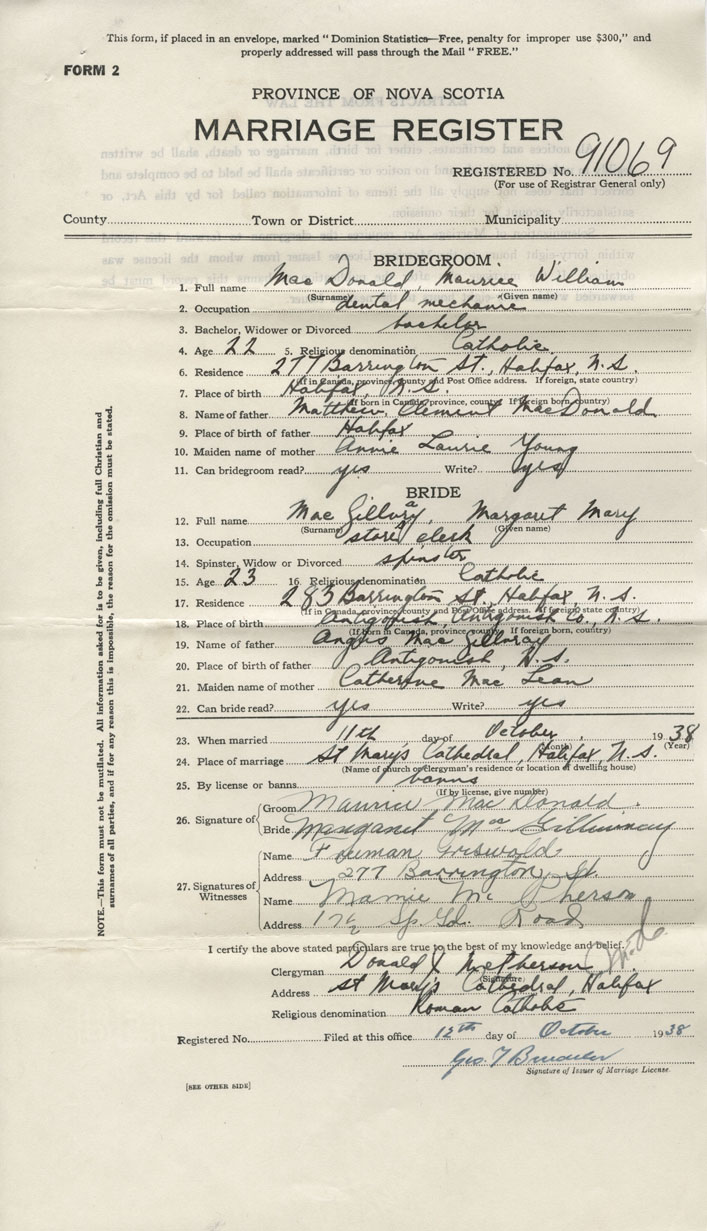 This form, if placed in an envelope, marked "Dominion Statistics—Free, penalty for improper use $300," and
properly addressed will pass through the Mail "FREE."
FORM 2
PROVINCE OF NOVA SCOTIA
MARRIAGE REGISTER
REGISTERED No. 91069
(For use of Registrar General only)
County Town or District Municipality
BRIDEGROOM
1. Full name Mac Donald, Maurice William
(Surname) (Given name)
2. Occupation dental mechanic
3. Bachelor, Widower or Divorced bachelor
4. Age 22 5. Religious denomination Catholic
6. Residence 277 Barrington St., Halifax, N.S.
(If in Canada, province, county and Post Office address. If foreign, state country)
7. Place of birth Halifax, N.S.
(If born in Canada, province, county. If foreign born, country)
8. Name of father Matthew Clement MacDonald
9. Place of birth of father Halifax
10. Maiden name of mother Annie Laurie Young
11. Can bridegroom read? yes Write? yes
BRIDE
12. Full name Mac Gillvray, Margaret Mary
(Surname) (Given name)
13. Occupation store clerk
14. Spinster, Widow or Divorced spinster
15. Age 23 16. Religious denomination Catholic
17. Residence 283 Barrington St., Halifax, N.S.
(If in Canada, province, county and Post Office address. If foreign state country)
18. Place of birth Antigonish, Antigonish Co., N.S.
(If born in Canada, province, county. If foreign born, country)
19. Name of father Angus Mac Gillvray
20. Place of birth of father Antigonish, N.S.
21. Maiden name of mother Catherine Mac Lean
22. Can bride read? yes Write? yes
23. When married 11th day of October 1938
(Month) (Year)
24. Place of marriage St Mary's Cathedral, Halifax, N.S.
(Name of church or clergyman's residence or location of dwelling house)
25. By license or banns banns
(If by license, give number)
26. Signature of
Groom Maurice Mac Donald.
Bride Margaret Mac Gillivray
27. Signatures of Witnesses
Name Freeman Griswold
Address 277 Barrington St.
Name Mamie Mc Pherson
Address Sp. Gd. Road
I certify the above stated particulars are true to the best of my knowledge and belief.
Clergyman Donald McPherson
(Signature)
Address St Mary's Cathedral, Halifax
Religious denomination Roman Catholic
Registered No. Filed at this office 12th day of October 1938
Geo. T
Signature of Issuer of Marriage License.
[SEE OTHER SIDE]
NOTE.—This form must not be mutilated. All information asked for is to be given, including full Christian and
surnames of all parties, and if for any reason this is impossible, the reason for the omission must be stated.